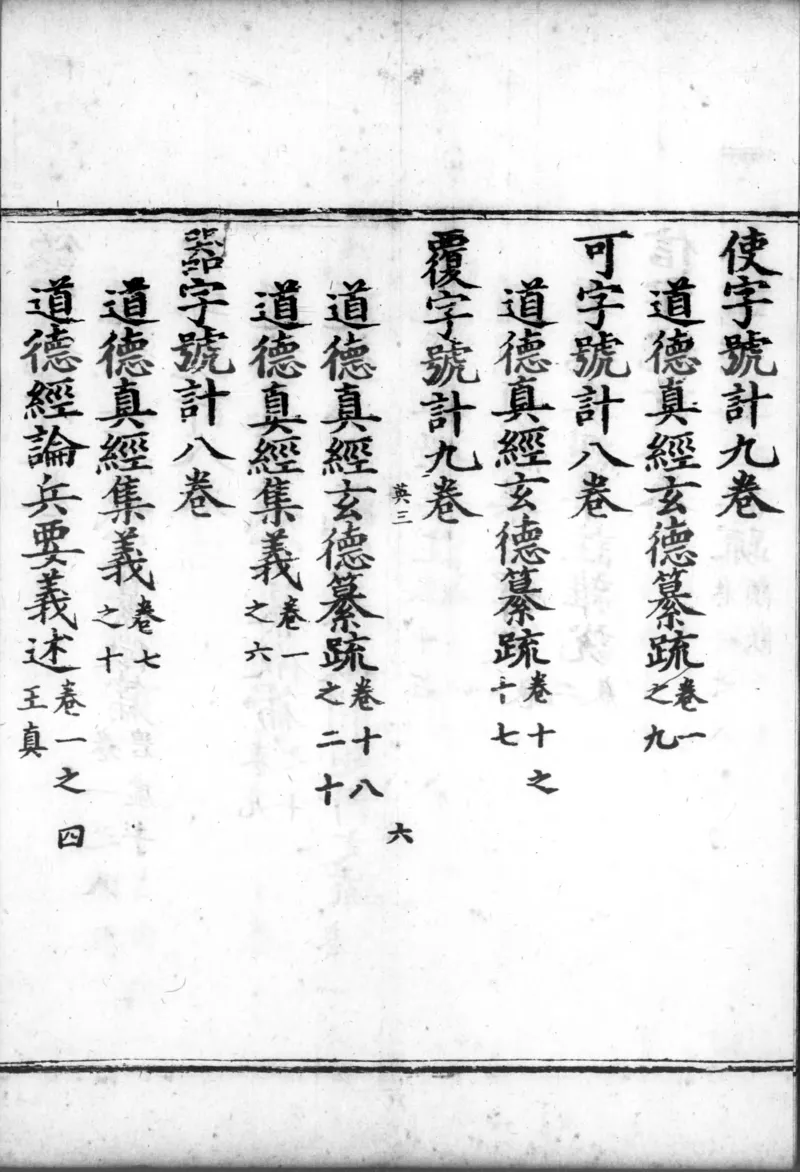 使字號計九卷
道德真經玄德纂疏卷一之九
可字號計八卷
道德真經玄德纂疏卷十之十七
覆字號計九卷
英三 六
道德真經玄德纂疏卷十八之二十
道德真經集義卷一之六
器字號計八卷
道德真經集義卷七之十
道德經論兵要義述卷一之四王真